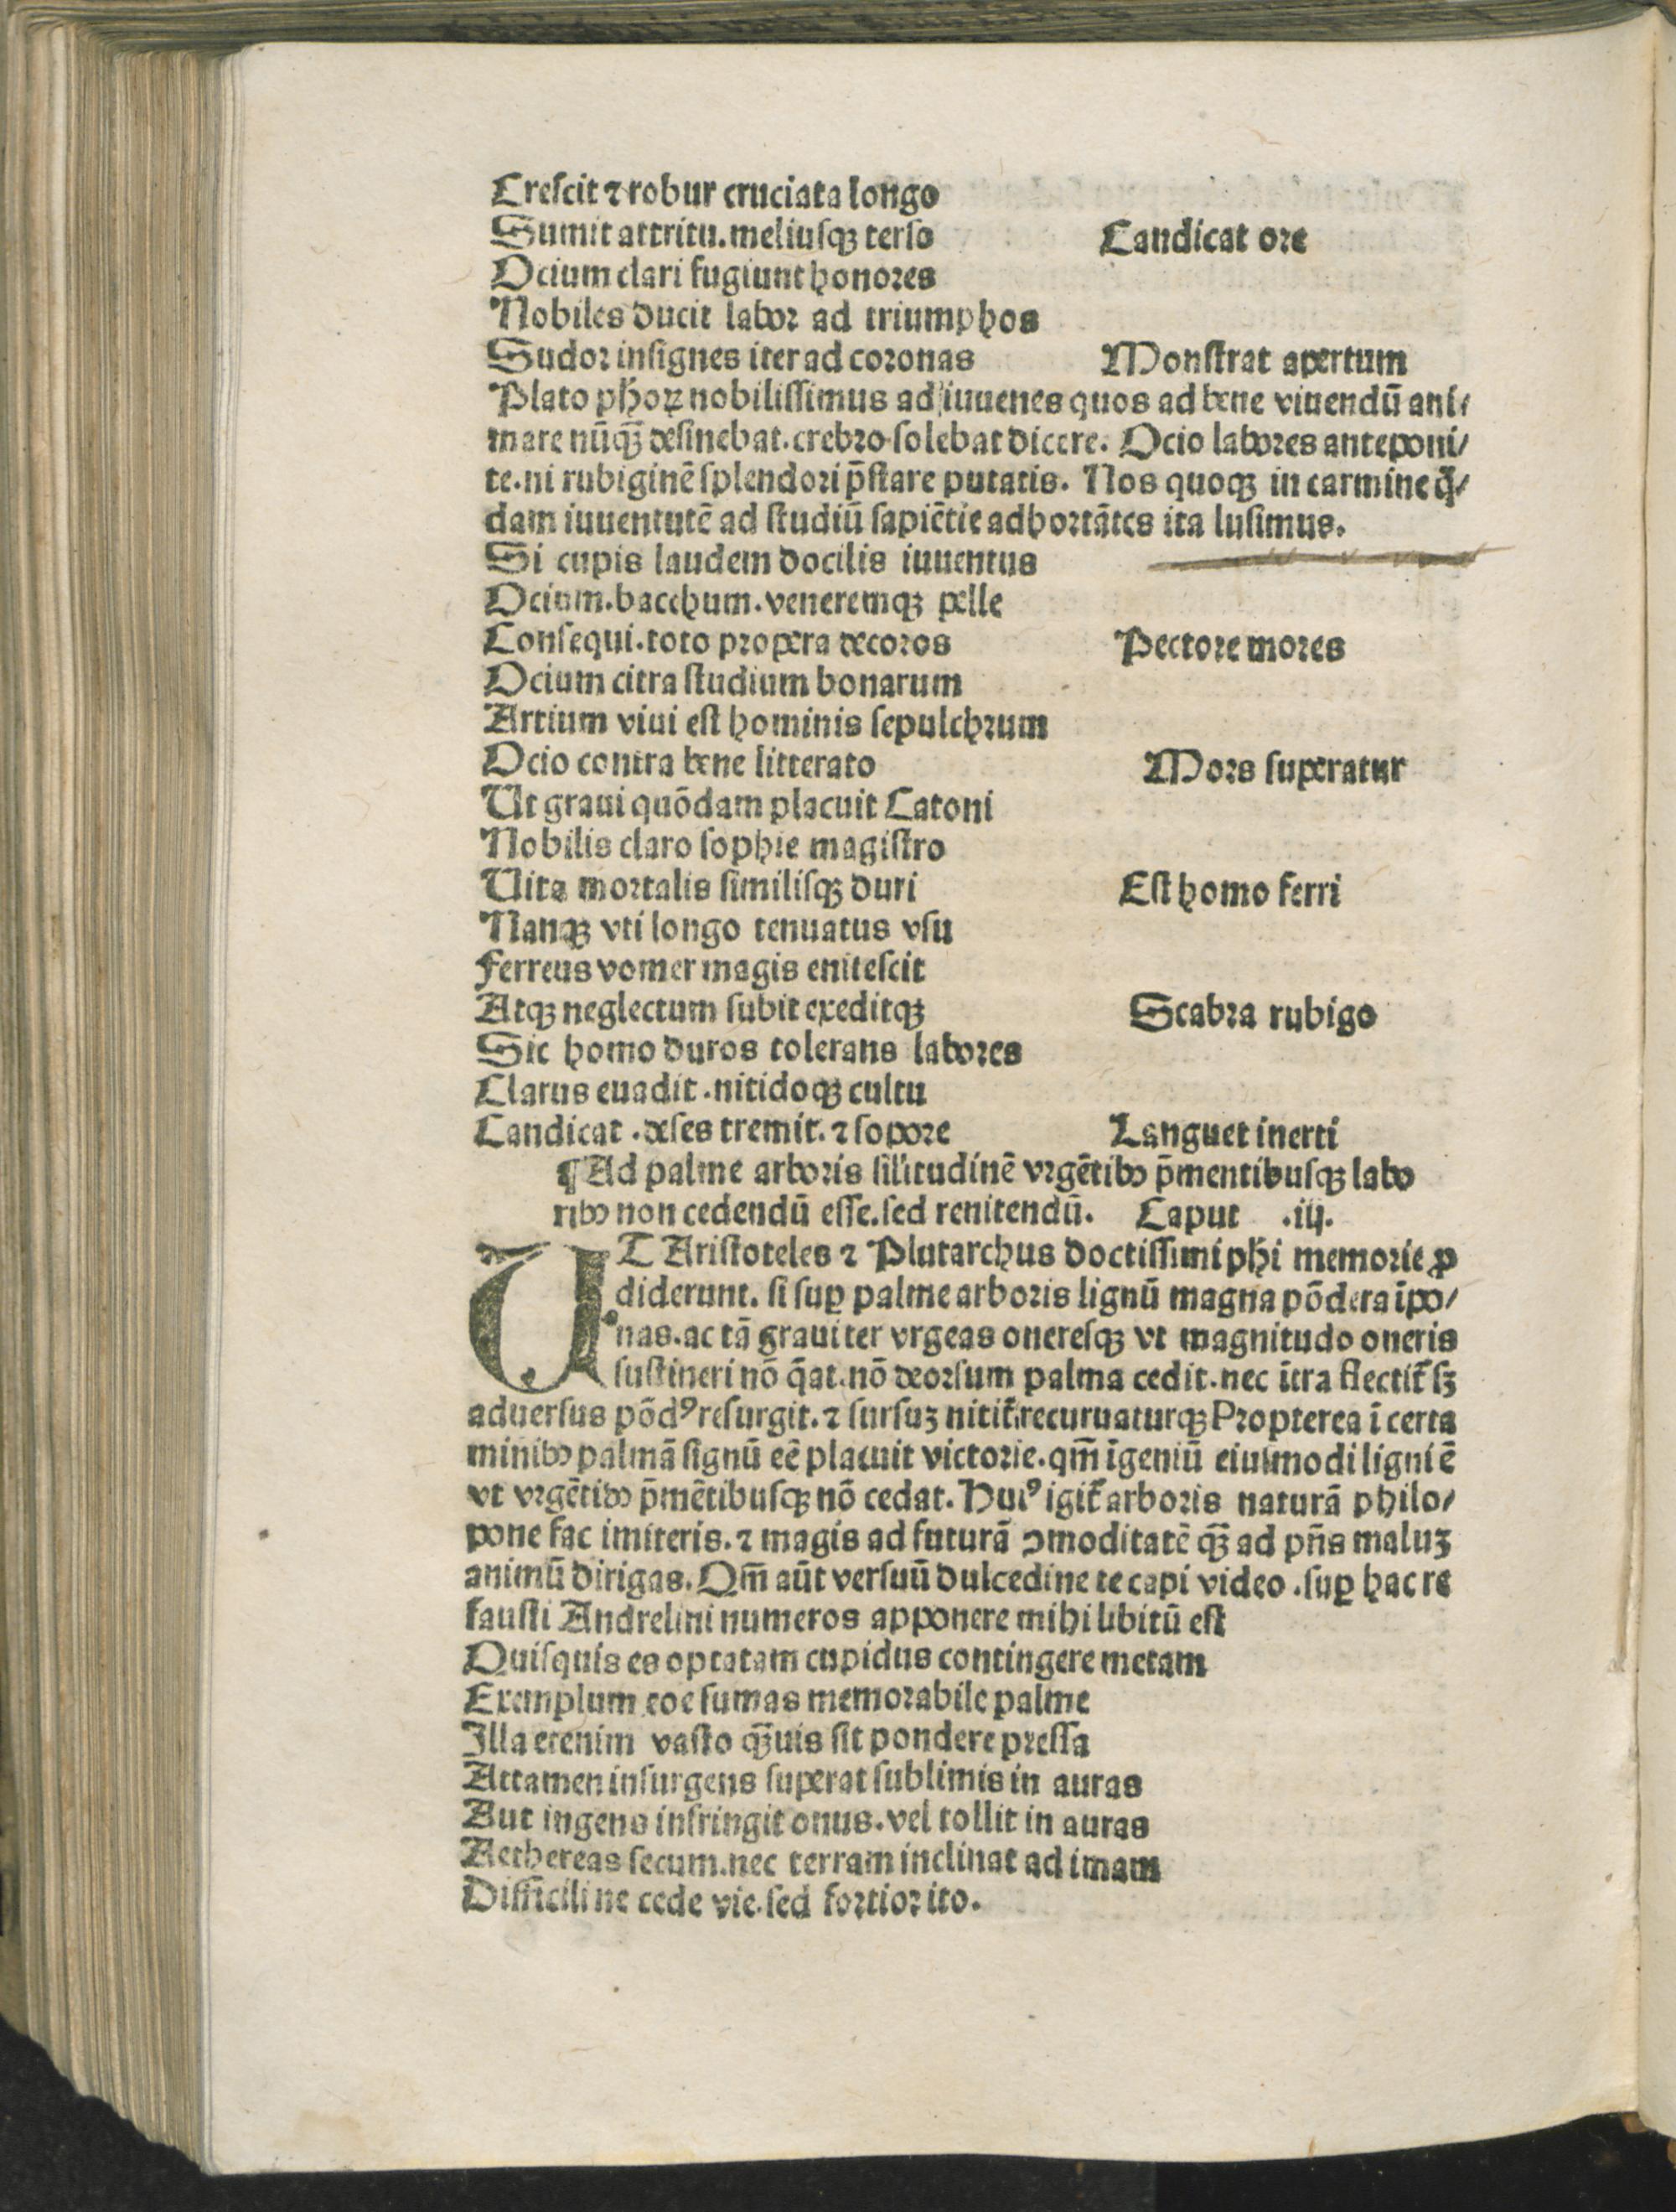 Creſcit ⁊ robur cruciata longo
Sumit attritu. meliuſqꝫ terſo Candicat ore
Ocium clari fugiunt honores
Nobiles ducit labor ad triumphos
Sudor inſignes iter ad coronas Monſtrat apertum
Plato phoꝝ nobiliſſimus ad iuuenes quos ad bene viuendū ani/
mare nūqꝫ̄ deſinebat. crebro ſolebat dicere. Ocio labores anteponi/
te. ni rubiginē ſplendori p̄ſtare putatis. Nos quoqꝫ in carmine q̄/
dam iuuentutē ad ſtudiū ſapiētie adhortātes ita luſimus.
Si cupis laudem docilis iuuentus
Ocium. bacchum. veneremqꝫ pelle
Conſequi. toto propera decoros Pectore mores
Ocium citra ſtudium bonarum
Artium viui eſt hominis ſepulchrum
Ocio contra bene litterato Mors ſuperatur
Ut graui quōdam placuit Catoni
Nobilis claro ſophie magiſtro
Uita mortalis ſimiliſqꝫ duri Eſt homo ferri
Nanqꝫ vti longo tenuatus vſu
Ferreus vomer magis eniteſcit
Atqꝫ neglectum ſubit exeditqꝫ Scabra rubigo
Sic homo duros tolerans labores
Clarus euadit. nitidoqꝫ cultu
Candicat. deſes tremit. ⁊ ſopore Languet inerti
¶ Ad palme arboris ſil'itudinē vrgētibꝰ p̄mentibuſqꝫ labo
ribꝰ non cedendū eſſe. ſed renitendū. Caput .iij.
UT Ariſtoteles ⁊ Plutarchus doctiſſimi phi memorie ꝓ
diderunt. ſi ſuꝑ palme arboris lignū magna pōdera īpo/
nas. ac tā grauiter vrgeas onereſqꝫ vt magnitudo oneris
ſuſtineri nō q̄at. nō deorſum palma cedit. nec ītra flectit̄ ſꝫ
aduerſus pōdꝰ reſurgit. ⁊ ſurſuꝫ nitit̄ recuruaturqꝫ Propterea ī certa
minibꝰ palmā ſignū eē placuit victorie. qm̄ īgeniū eiuſmodi ligni ē
vt vrgētibꝰ p̄mētibuſqꝫ nō cedat. Huiꝰ igit̄ arboris naturā philo/
pone fac imiteris. ⁊ magis ad futurā ꝯmoditatē qꝫ̄ ad pn̄s maluꝫ
animū dirigas. Qm̄ aūt verſuū dulcedine te capi video. ſuꝑ hac re
fauſti Andrelini numeros apponere mihi libitū eſt
Quiſquis es optatam cupidus contingere metam
Exemplum eoe ſumas memorabile palme
Illa etenim vaſto qꝫ̄uis ſit pondere preſſa
Attamen inſurgens ſuperat ſublimis in auras
Aut ingens infringit onus. vel tollit in auras
Aethereas ſecum. nec terram inclinat ad imam
Difficili ne cede vie. ſed fortior ito.